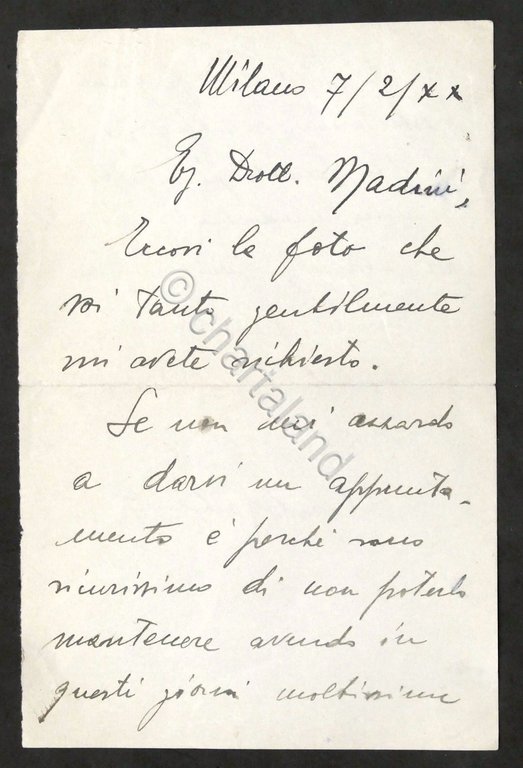 Milano 7/2/XX
Eg. Dott. Nadini,
Eccovi le foto che
voi tanto gentilmente
mi avete richiesto.
Se non mi azzardo
a darvi un appunta-
mento è perchè sono
sicurissimo di non poterlo
mantenere avendo in
questi giorni moltissime
© chartaland